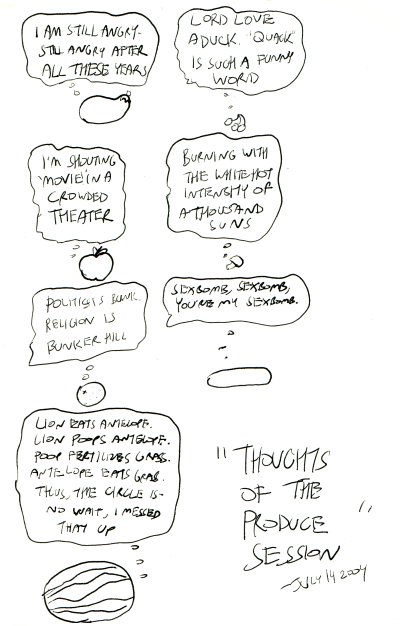 I AM STILL ANGRY-
STILL ANGRY AFTER
ALL THESE YEARS
LORD LOVE
A DUCK. "QUACK"
IS SUCH A FUNNY
WORD
I'M SHOUTING
'MOVIE' IN A
CROWDED
THEATER
BURNING WITH
THE WHITE HOT
INTENSITY OF
A THOUSAND
SUNS
POLITICS IS BUNK.
RELIGION IS
BUNKER HILL
SEXBOMB, SEXBOMB,
YOU'RE MY SEXBOMB.
LION EATS ANTELOPE.
LION POOPS ANTELOPE.
POOP FERTILIZES GRASS.
ANTELOPE EATS GRASS.
THUS, THE CIRCLE IS-
NO WAIT, I MESSED
THAT UP
"THOUGHTS
OF THE
PRODUCE
SESSION"
~JULY 14 2004